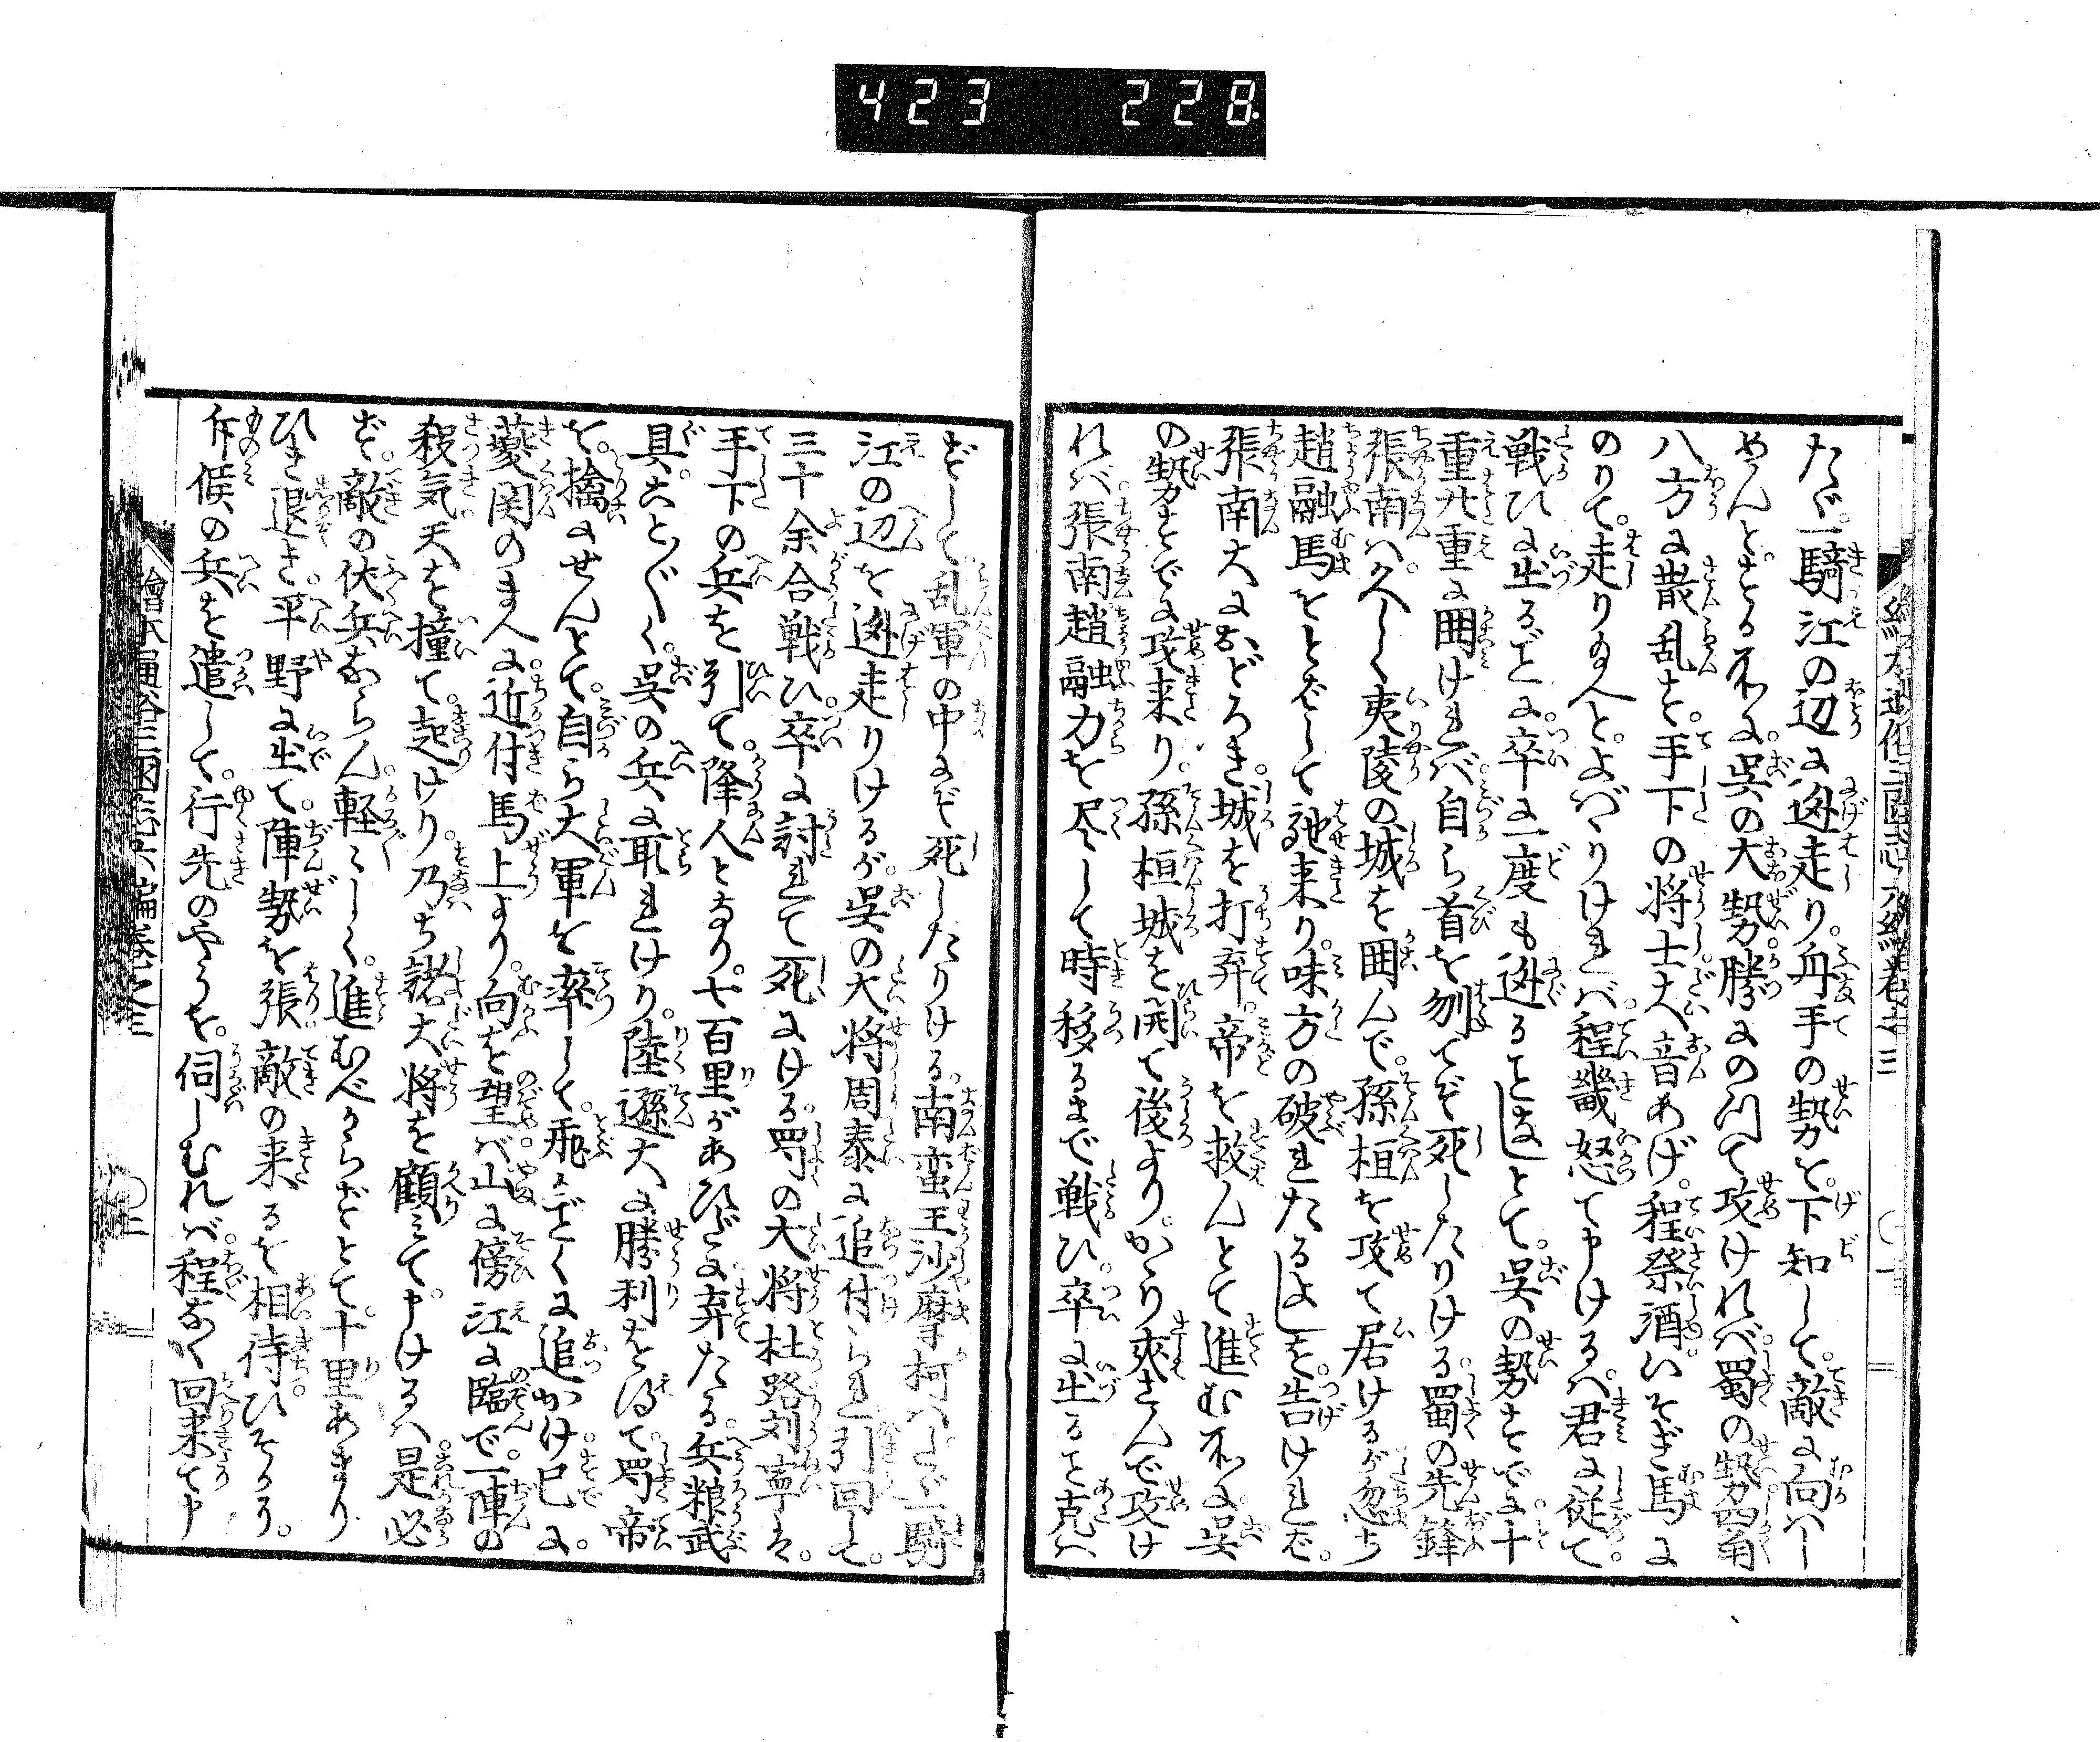 423 228
たゞ一騎江の辺に迯走り。舟手の勢を。下知して。敵に向はし
めんとする所に。呉の大勢勝にのつて攻ければ。蜀の勢四角
八方に散乱す。手下の将士大音あげ。程祭酒いそぎ馬に
のりて。走り玉へとよばゝりければ。程畿怒て申けるハ。君に従て
戦ひに出るごとに。卒に一度も迯ることなしとて。呉の勢すでに十
重廿重に囲ければ。自ら首を刎てぞ死したりける。蜀の先鋒
張南ハ。久しく夷陵の城を囲んで。孫桓を攻て居けるが。忽ち
趙融馬をとばして馳来り。味方の破れたるよしを。告ければ。
張南大におどろき。城を打弃。帝を救んとて進む所に。呉
の勢すでに攻来り。孫桓城を開て後より。かゝり夾さんで攻け
れバ。張南趙融力を尽して時移るまで戦ひ。卒に出ること克ハ
ずして。乱軍の中にぞ死したりける。南蛮王沙摩柯ハたゞ一騎
江の辺を迯走りけるが。呉の大将周泰に追付られ引回して。
三十余合戦ひ。卒に討れて死にける。蜀の大将杜路刘寧ハ。
手下の兵を引て。降人となり。七百里があひだに弃たる。兵粮武
具。こと〴〵く。呉の兵に取れけり。陸遜大に勝利を得て。蜀帝
を。擒にせんとて。自ら大軍を率して。飛ごとくに追かけ已に。
夔関のまへに。近付馬上より。向を望バ。山に傍江に臨で。一陣の
殺気天を撞て。起けり。乃ち諸大将を顧ミて。申けるハ是必
ず。敵の伏兵あらん。軽〻しく。進むべからずとて。十里あまり
ひき退き。平野に出て。陣勢を張。敵の来るを相待ひそかに。
斥候の兵を遣して。行先のやうを。伺しむれバ。程なく回来て申